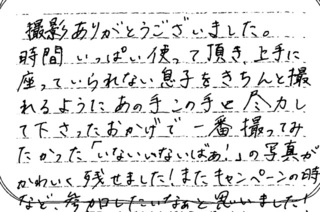 撮影ありがとうございました。
時間いっぱい使って頂き、上手に
座っていられない息子をきちんと撮
れるようにあの手この手と尽力し
て下さったおかげで一番撮ってみ
たかった「いないいないばあ!」の写真が
かわいく残せました!またキャンペーンの時
など、参加したいなぁと思いました!